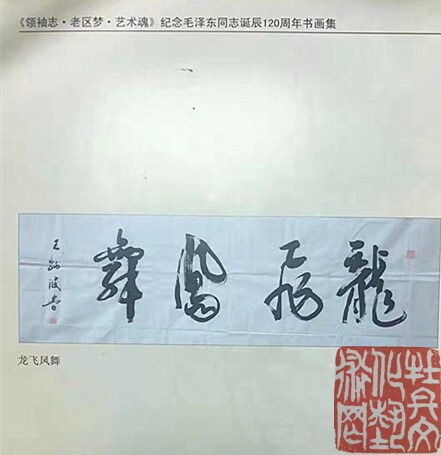 《领袖志·老区梦·艺术魂》纪念毛泽东同志诞辰120周年书画集
龍飛鳳舞
王 波書
龙飞凤舞
牡丹文
化藝
術网